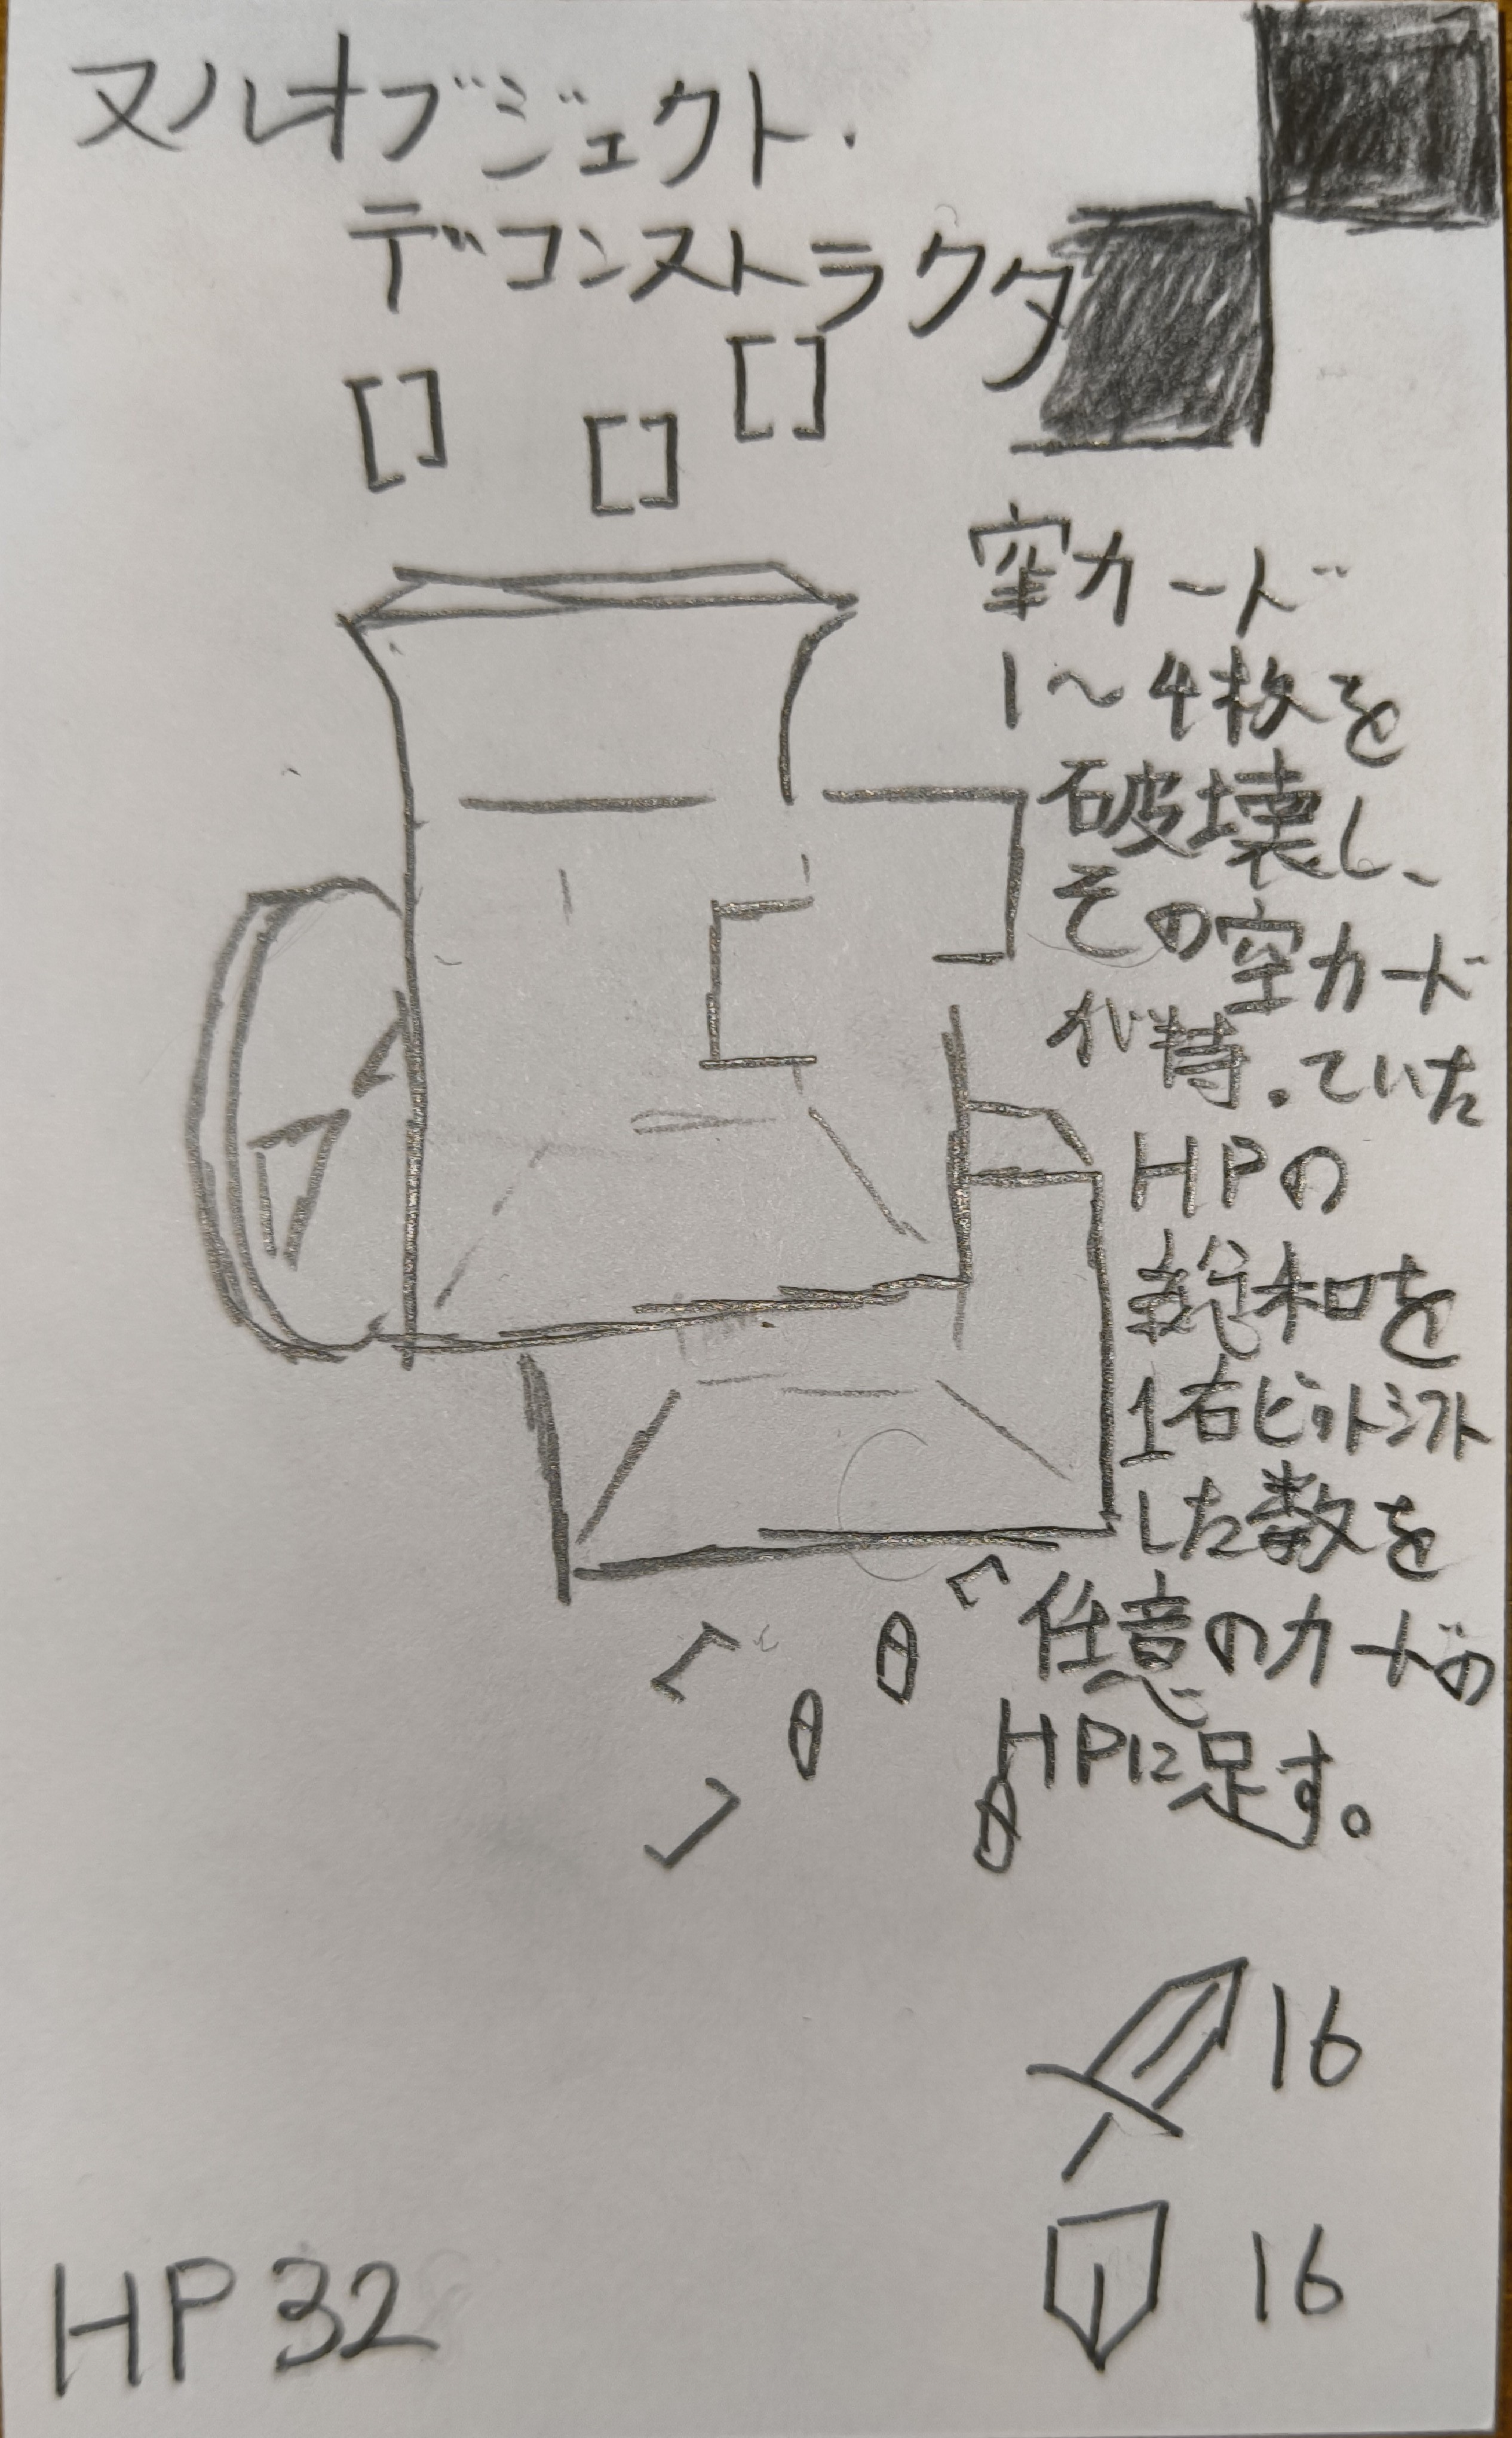 ヌルオブジェクト・
デコンストラクタ
[]
[]
[]
空カード
1～4枚を
破壊し、
その空カード
が持っていた
HPの
総和を
1右ビットシフト
した数を
任意のカードの
HPに足す。
16
16
HP32